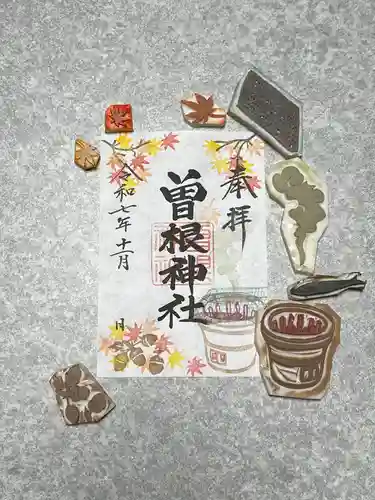 奉拝
曽根神社
令和七年十一月
日